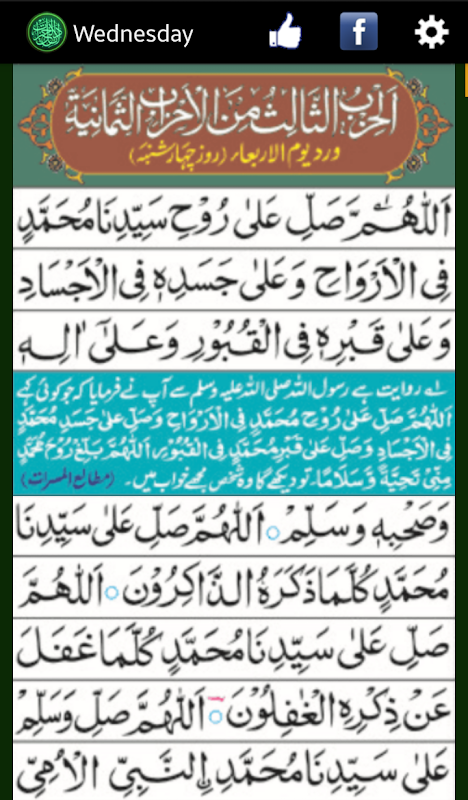 Wednesday
اَلْحِزْبُ الثَّالِثُ مِنَ الْأَحْزَابِ الثَّمَانِيَةِ
ورد یوم الاربعاء (روز چہار شنبہ)
اَللّٰهُمَّ صَلِّ عَلٰى رُوْحِ سَيِّدِنَا مُحَمَّدٍ
فِي الْاَرْوَاحِ وَعَلٰى جَسَدِهٖ فِي الْاَجْسَادِ
وَعَلٰى قَبْرِهٖ فِي الْقُبُوْرِ وَعَلٰٓى اٰلِهٖ
لے روایت ہے رسول اللہ صلی اللہ علیہ وسلم سے آپ نے فرمایا کہ جو کوئی کہے
اَللّٰهُمَّ صَلِّ عَلٰى رُوْحِ مُحَمَّدٍ فِي الْاَرْوَاحِ وَصَلِّ عَلٰى جَسَدِ مُحَمَّدٍ
فِي الْاَجْسَادِ وَصَلِّ عَلٰى قَبْرِ مُحَمَّدٍ فِي الْقُبُوْرِ اَللّٰهُمَّ بَلِّغْ رُوْحَ مُحَمَّدٍ
مِنِّيْ تَحِيَّةً وَّسَلَامًا۔ تو دیکھے گا وہ شخص مجھے خواب میں۔ (مطالع المسرات)
وَصَحْبِهٖ وَسَلِّمْ ○ اَللّٰهُمَّ صَلِّ عَلٰى سَيِّدِنَا
مُحَمَّدٍ كُلَّمَا ذَكَرَهُ الذَّاكِرُوْنَ ○ اَللّٰهُمَّ
صَلِّ عَلٰى سَيِّدِنَا مُحَمَّدٍ كُلَّمَا غَفَلَ
عَنْ ذِكْرِهِ الْغٰفِلُوْنَ ○ اَللّٰهُمَّ صَلِّ وَسَلِّمْ
عَلٰى سَيِّدِنَا مُحَمَّدِ ۨالنَّبِيِّ الْاُمِّيِّ